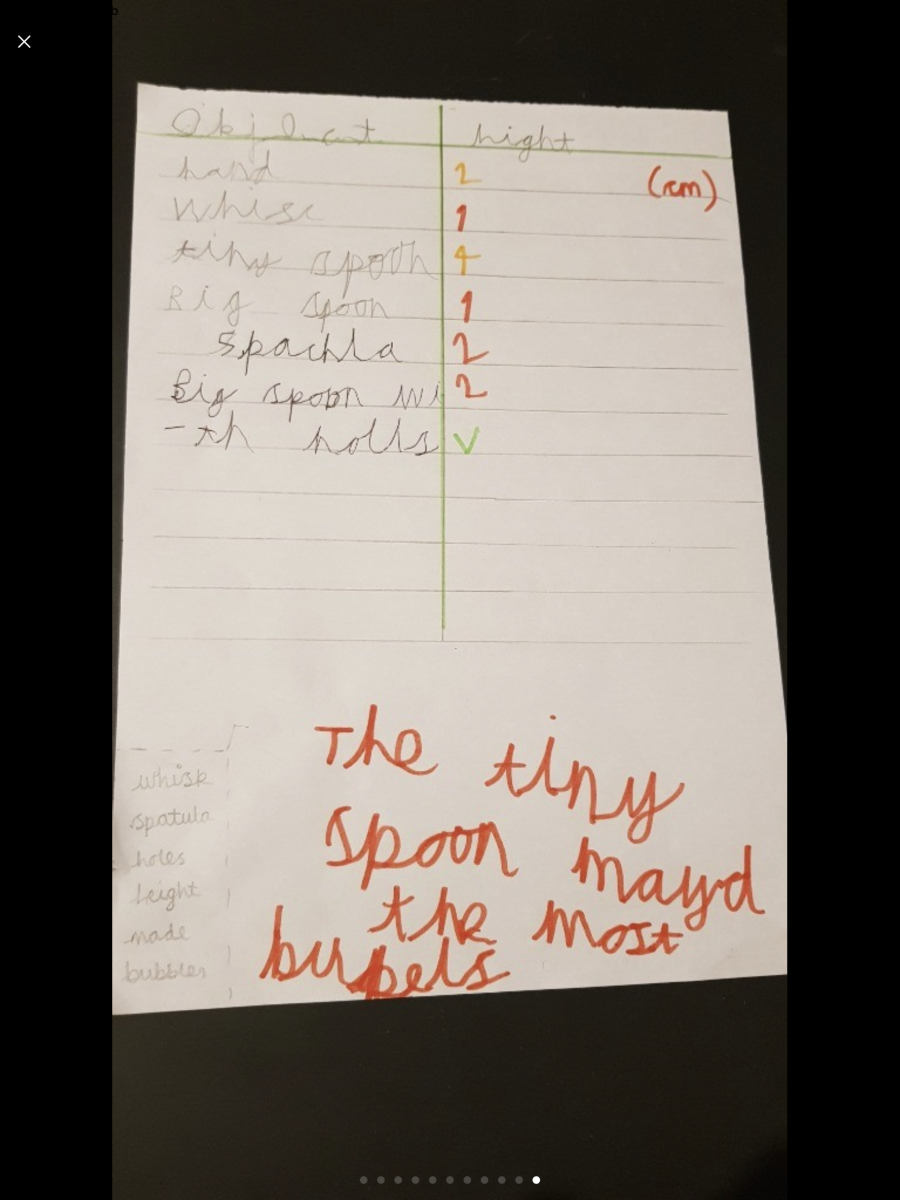 Objduct hight
hand 2 (cm)
whisc 1
tiny spoon 4
Big spoon 1
spachla 2
Big spoon wi 2
-th holls v
The tiny
spoon mayd
the most
bubels
whisk
spatula
holes
height
made
bubbles